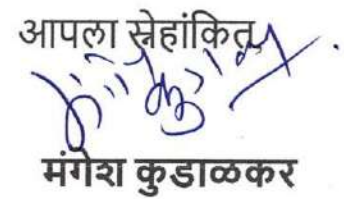 आपला स्नेहांकित,
मंगेश कुडाळकर